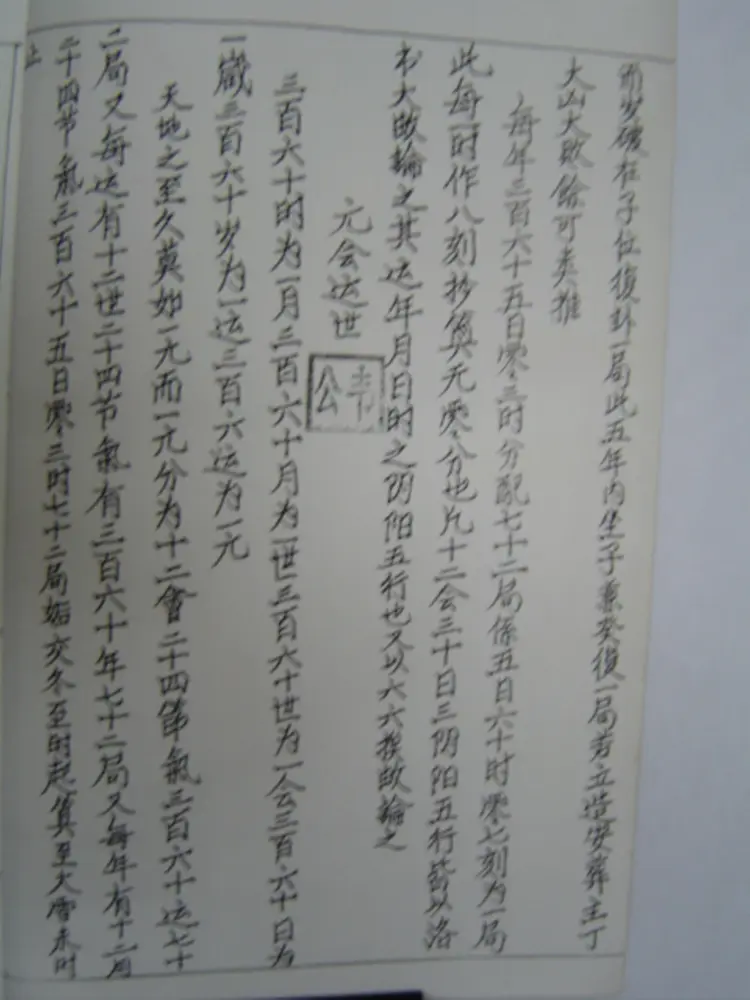 而岁破在子位復卦一局此五年内坐子兼癸復一局者立造安葬主丁
大凶大败餘可类推
每年三百六十五日零三时分配七十二局係五日六十时零七刻为一局
此每一时作八刻抄算无零分也凡十二会三十日三阴阳五行皆以洛
书大敀論之其运年月日时之阴阳五行也又以六六挨敀論之
元会运世
三百六十时为一月三百六十月为一世三百六十世为一会三百六十日为
一歲三百六十岁为一运三百六运为一元
天地之至久莫如一元而一元分为十二會二十四節氣三百六十运七十
二局又每运有十二世二十四节氣有三百六十年七十二局又每年有十二月
二十四节氣三百六十五日零三时七十二局始交冬至时起算至大雪末时
止